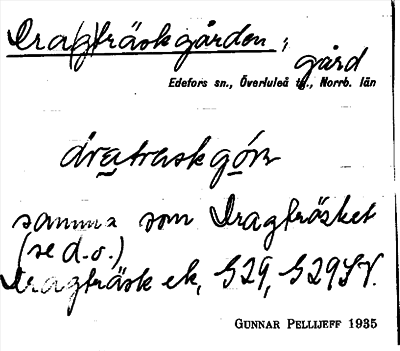 Dragträskgården,
gård
Edefors sn., Överluleå tg., Norrb. län
dratraskgórn
samma som Dragträsket
(se d.o.)
Dragträsk ek, G29, G29SV.
GUNNAR PELLIJEFF 1935